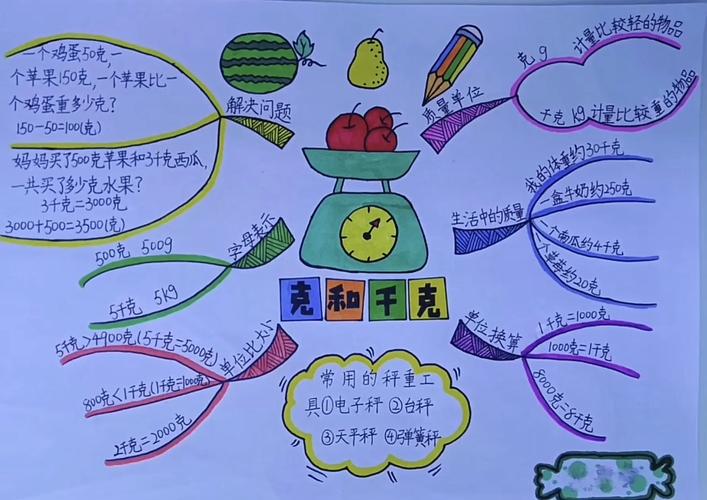 一个鸡蛋50克,一
个苹果150克,一个苹果比一
个鸡蛋重多少克?
150-50=100(克)
妈妈买了500克苹果和3千克西瓜,
一共买了多少克水果?
3千克=3000克
3000+500=3500(克)
解决问题
500克 500g
5千克 5kg
字母表示
5千克>4900克(5千克=5000克)
800克<1千克(1千克=1000克)
2千克=2000克
单位比大小
克和千克
常用的秤重工
具①电子秤 ②台秤
③天平秤 ④弹簧秤
质量单位
克 g 计量比较轻的物品
千克 kg 计量比较重的物品
生活中的质量
我的体重约30千克
一盒牛奶约250克
一个南瓜约4千克
个草莓约20克
单位换算
1千克=1000克
1000克=1千克
8000克=8千克